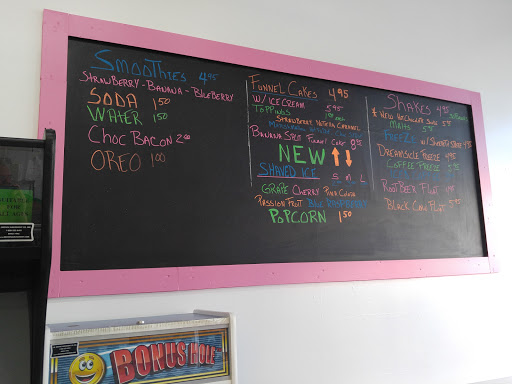 SMOOTHIES 4.95
STRAWBERRY - BANANA - BLUEBERRY
SODA 1.50
WATER 1.50
CHOC BACON 2.00
OREO 1.00
FUNNEL CAKES 4.95
W/ ICE CREAM 5.95
TOPPINGS
STRAWBERRY NUTELLA CARAMEL
BANANA SPLIT FUNNEL CAKE 8.95
NEW ↑ ↓
SHAVED ICE S M L
GRAPE CHERRY PINA COLADA
PASSION FRUIT BLUE RASPBERRY
POPCORN 1.50
SHAKES 4.95
MALTS
FREEZE
DREAMSICLE FREEZE 4.95
COFFEE FREEZE
ROOT BEER FLOAT
BLACK COW FLOAT
BONUS HOLE